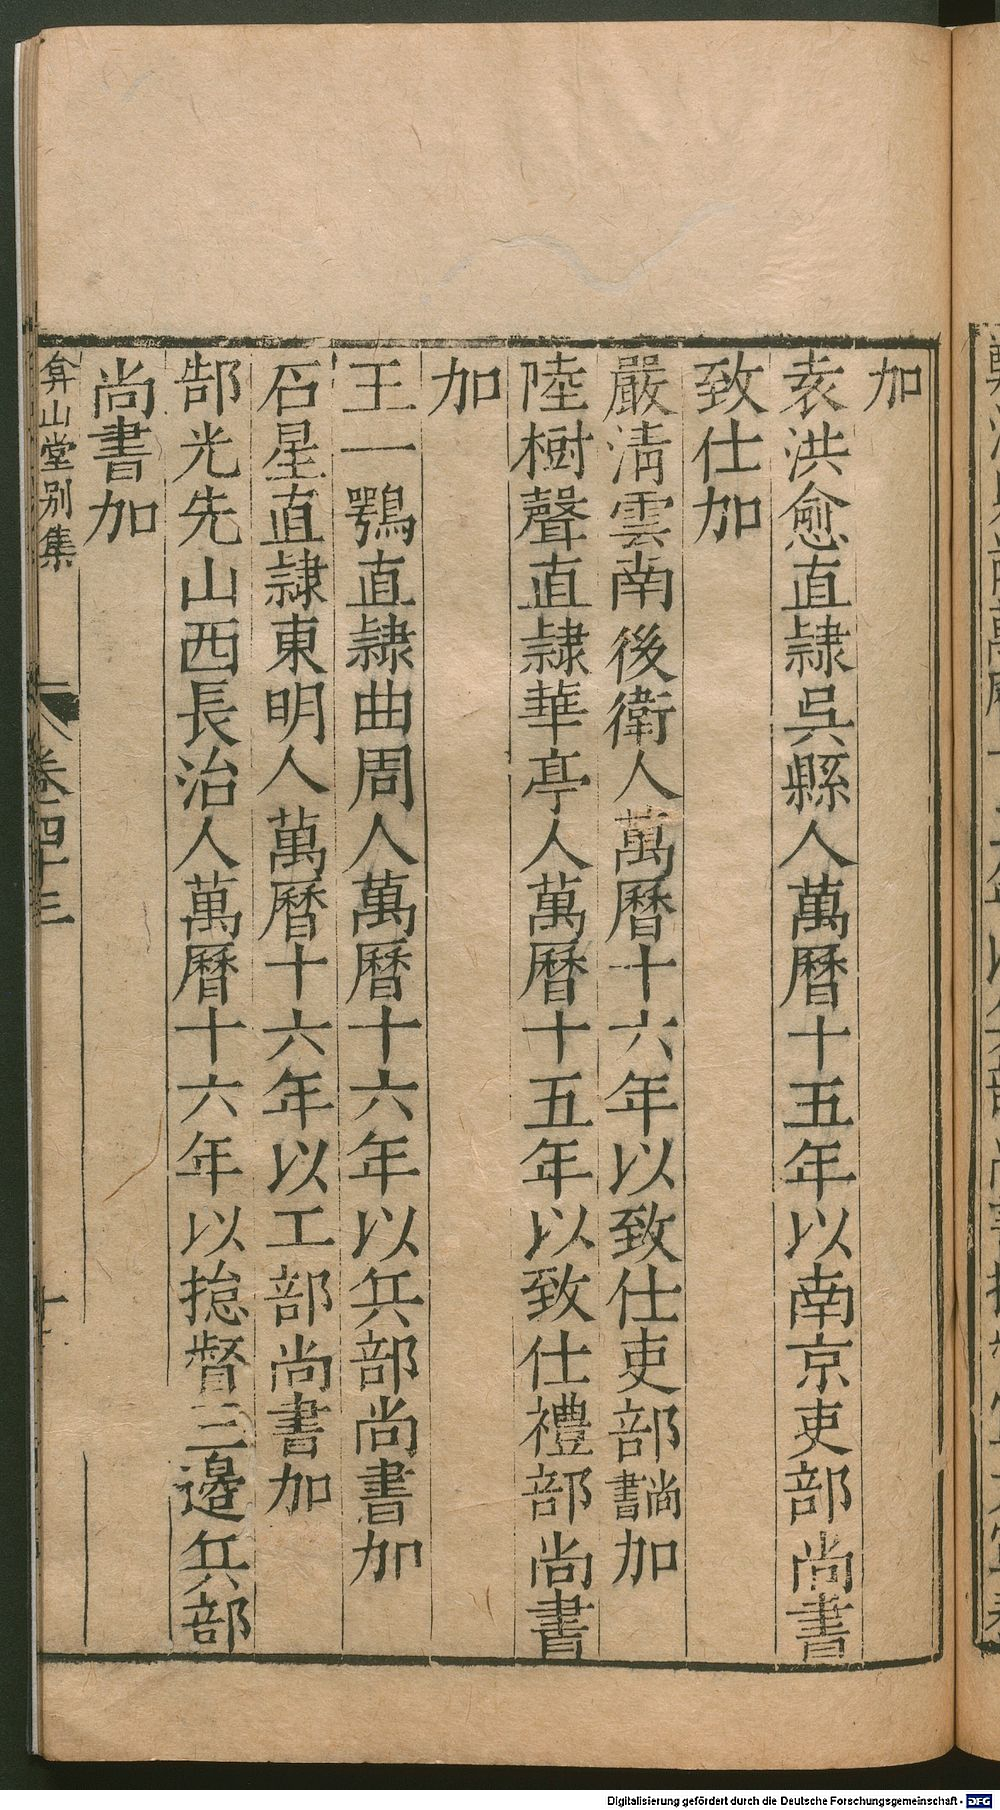 加
袁洪愈直隷吳縣人萬曆十五年以南京吏部尚書
致仕加
嚴淸雲南後衛人萬曆十六年以致仕吏部尚書加
陸樹聲直隷華亭人萬曆十五年以致仕禮部尚書
加
王一鶚直隷曲周人萬曆十六年以兵部尚書加
石星直隷東明人萬曆十六年以工部尚書加
郜光先山西長治人萬曆十六年以揔督三邊兵部
尚書加
弇山堂別集
卷四十三
十
Digitalisierung gefördert durch die Deutsche Forschungsgemeinschaft - DFG